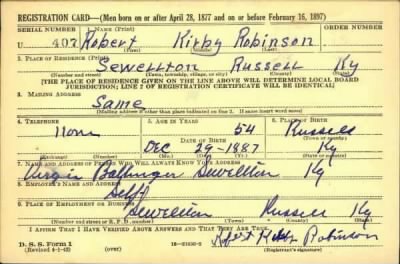 REGISTRATION CARD—(Men born on or after April 28, 1877 and on or before February 16, 1897)
SERIAL NUMBER 1. NAME (Print) ORDER NUMBER
U 407 Robert Kirby Robinson
(First) (Middle) (Last)
2. PLACE OF RESIDENCE (Print)
Sewellton Russell Ky
(Number and street) (Town, township, village, or city) (County) (State)
[THE PLACE OF RESIDENCE GIVEN ON THE LINE ABOVE WILL DETERMINE LOCAL BOARD
JURISDICTION; LINE 2 OF REGISTRATION CERTIFICATE WILL BE IDENTICAL]
3. MAILING ADDRESS
Same
[Mailing address if other than place indicated on line 2. If same insert word same]
4. TELEPHONE 5. AGE IN YEARS 6. PLACE OF BIRTH
None 54 Russell
DATE OF BIRTH (Town or county)
Dec 29-1887 Ky
(Exchange) (Number) (Mo.) (Day) (Yr.) (State or country)
7. NAME AND ADDRESS OF PERSON WHO WILL ALWAYS KNOW YOUR ADDRESS
Virgie Ballenger Sewellton Ky
8. EMPLOYER'S NAME AND ADDRESS
Self
9. PLACE OF EMPLOYMENT OR BUSINESS
Sewellton Russell Ky
(Number and street or R. F. D. number) (Town) (County) (State)
I AFFIRM THAT I HAVE VERIFIED ABOVE ANSWERS AND THAT THEY ARE TRUE.
Robert Kirby Robinson
D. S. S. Form 1
(Revised 4-1-42) (over) (Registrant's signature)